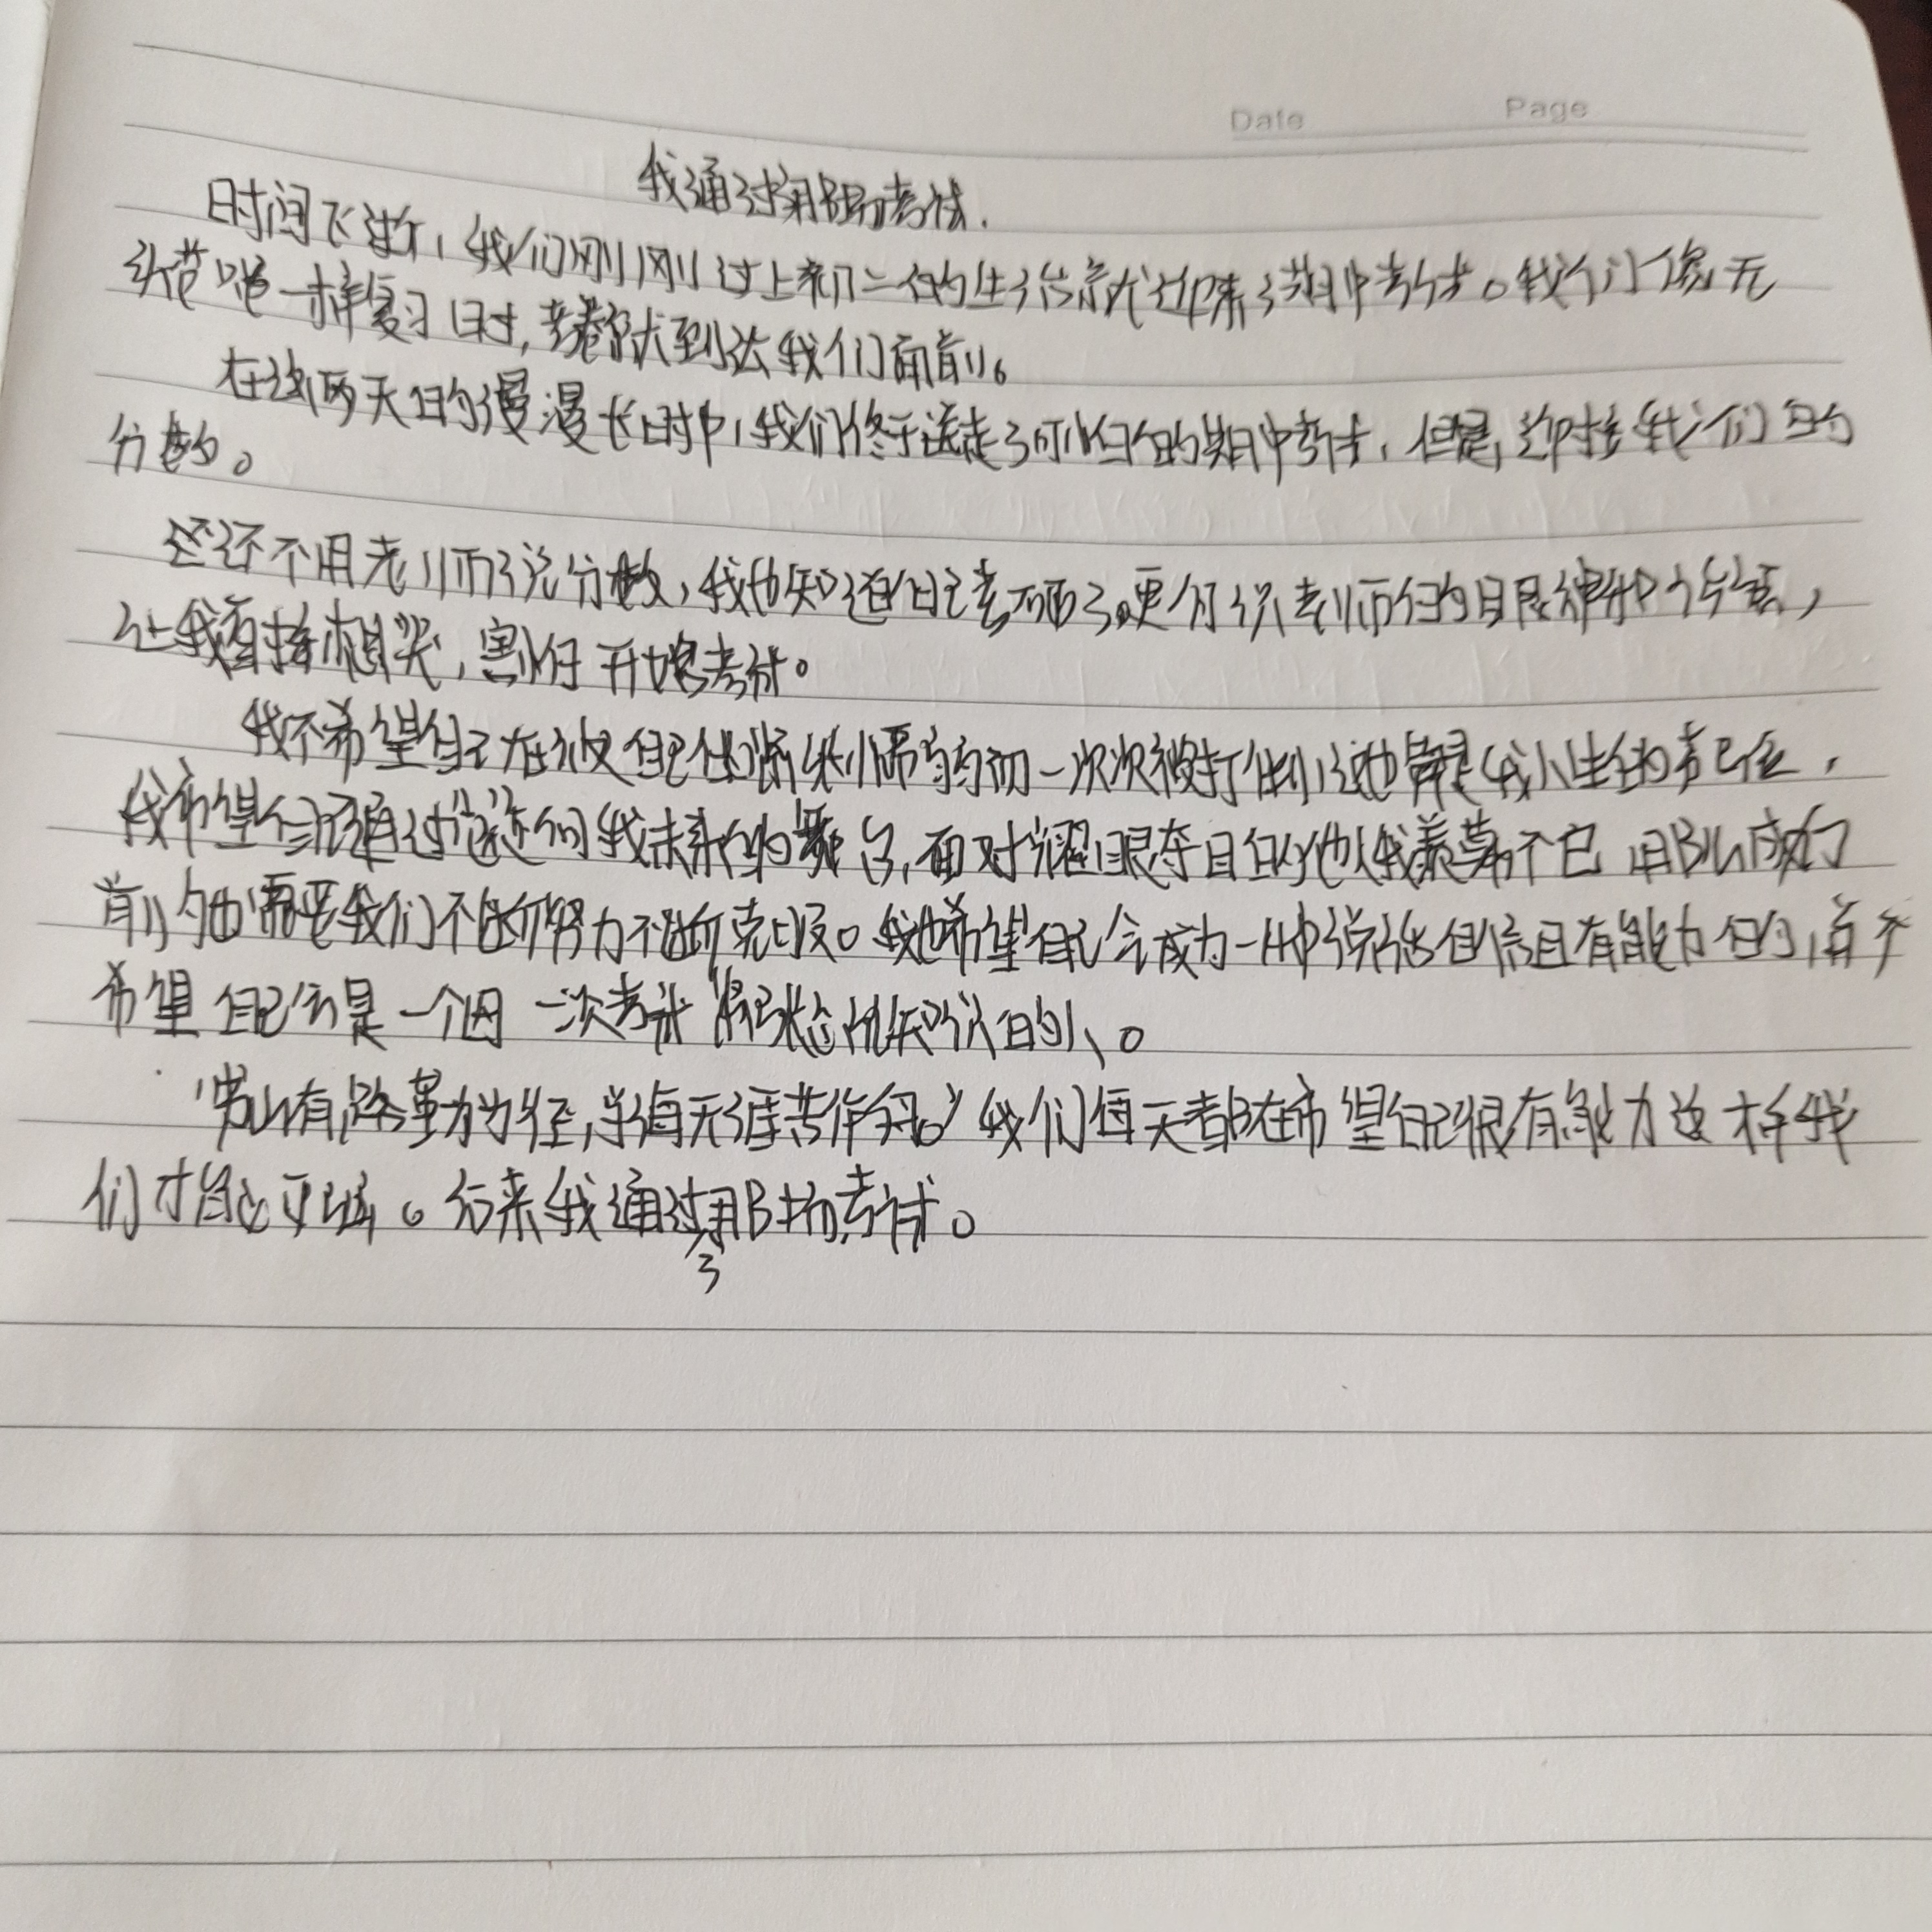 Date Page
我通过那场考试.
时间飞逝，我们刚刚过上初二的生活就迎来了期中考试。我们像无
头苍蝇一样复习时,考卷就到达我们面前。
在这两天的漫漫长时中，我们终于送走了可怕的期中考试，但是,迎接我们的
分数。
还不用老师说分数，我也知道自己考砸了。更何况老师的眼神和
让我直接想哭,害怕开始考试。
我不希望自己在被自己的而一次次被打倒
我希望自己通过我未来的舞台,面对耀眼夺目的他人我羡慕不已 成功
前面也需要我们不断努力不断克服。我也希望自己会成为一种说话自信且有能力的
希望自己会是一个因一次考试的人。
“书山有路勤为径,学海无涯苦作舟。”我们每天都在希望自己很有能力这样我
们才能。后来我通过了那场考试。